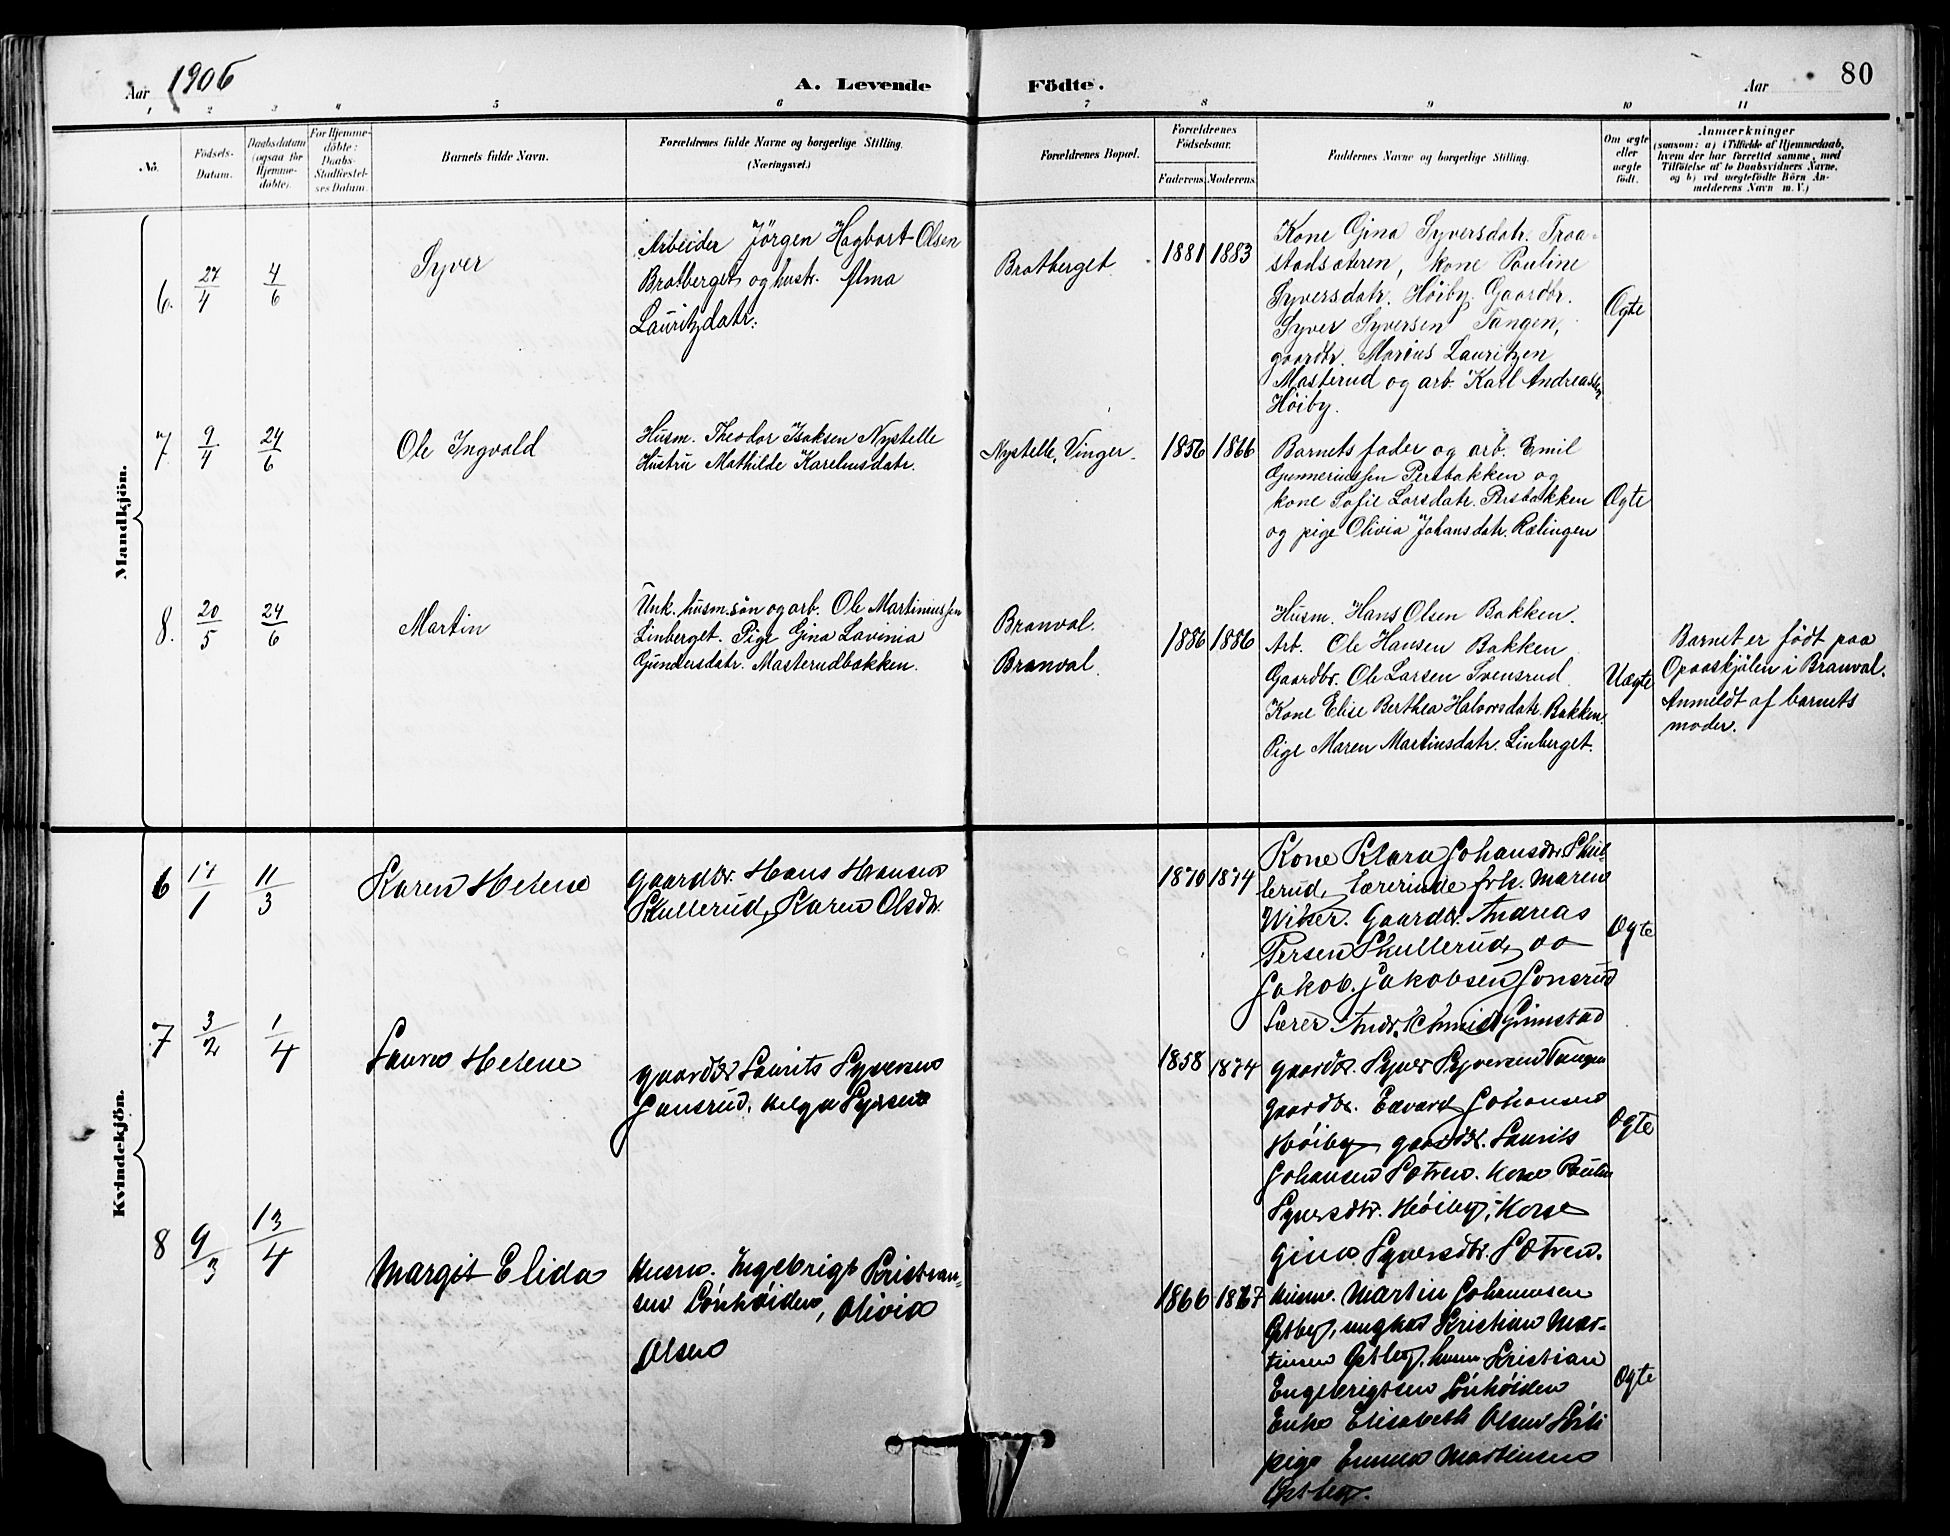 Aar 1906
A. Levende
Födte.
Aar
80
1 2 3 4 5 6 7 8 9 10 11
No.
Födsels-
Datum.
Daabsdatum
(ogsaa for
Hjemme-
döbte).
For Hjemme-
döbte:
Daabs-
Stadfæstel-
ses Datum.
Barnets fulde Navn.
Forældrenes fulde Navne og borgerlige Stilling.
(Næringsvei.)
Forældrenes Bopæl.
Forældrenes
Födselsaar.
Faderens.
Moderens.
Faddernes Navne og borgerlige Stilling.
Om ægte
eller
uægte
födt.
Anmærkninger
(saasom: a) i Tilfælde af Hjemmedaab,
hvem der har forrettet samme, med
Tilföielse af to Daabsvidners Navne,
og b) ved uægtefödte Börn An-
melderens Navn m. V.)
Mandkjön.
6. 27/4 4/6
Syver
Arbeider Jörgen Hagbart Olsen
Bratberget og hustr. Alma
Lauritzdatr.
Bratberget.
1881 1883
Kone Gina Syversdatr. Traa-
stadsæteren, kone Pauline
Syversdatr. Höiby. Gaardbr.
Syver Syversen Tangen,
gaardbr. Marius Lauritzen
Masterud og arb. Karl Andreassen
Höiby.
Ægte
7 9/4 24/6
Ole Ingvald
Husm. Theodor Isaksen Nystelle
Hustru Mathilde Kareliusdatr.
Nystelle, Vinger.
1856 1866
Barnets fader og arb. Emil
Gunneriussen Persbakken og
kone Sofie Larsdatr. Persbakken
og pige Olivia Johansdatr. Rælingen
Ægte
8. 20/5 24/6
Martin
Unk. husm.sön og arb. Ole Martiniussen
Linberget. Pige Gina Lavinia
Gundersdatr. Masterudbakken.
Branval.
Branval.
1886 1886
Husm. Hans Olsen Bakken.
Arb. Ole Hansen Bakken
Gaardbr. Ole Larsen Svensrud
Kone Elise Berthea Halvorsdatr. Bakken.
Pige Maren Martinsdatr. Linberget.
Uægte
Barnet er født paa
Opaaskjölen i Branval.
Anmeldt af barnets
moder.
Kvindekjön.
6 17/1 11/3
Karen Helene
gaardbr. Hans Hansen
Skullerud, Karen Olsdtr.
1870 1874
Kone Klara Johansdtr Skul-
lerud, Lærerinde frk. Maren
Wiker. Gaardbr. Andreas
Persen Skullerud, do
Jakob Jakobsen Jonsrud
Lærer Andr. Schmidt Grimstad
Ægte
7 3/2 1/4
Laura Helene
gaardbr Laurits Syversen
Jansrud, Helga Syversen
1858 1874
gaardbr. Syver Syversen Tangen
Gaardbr. Edvard Johansen
Höiby, gaardbr. Laurits
Johansen Sætren. Kone Paulin
Syversdtr. Höiby, Kone
Gina Syversdtr. Sætren.
Ægte
8 9/3 13/4
Margit Elida
Husm. Ingebrigt Kristian-
sen Lönhöiden, Olivia
Olsen
1866 1867
Husm. Martin Johannesen
Østby, ungkar Kristian Mar-
tinsen Østby, husm. Kristian
Engebrigtsen Lönhöiden
Enke Elisabeth Olsen
pige Emma Martinsen
Østby.
Ægte